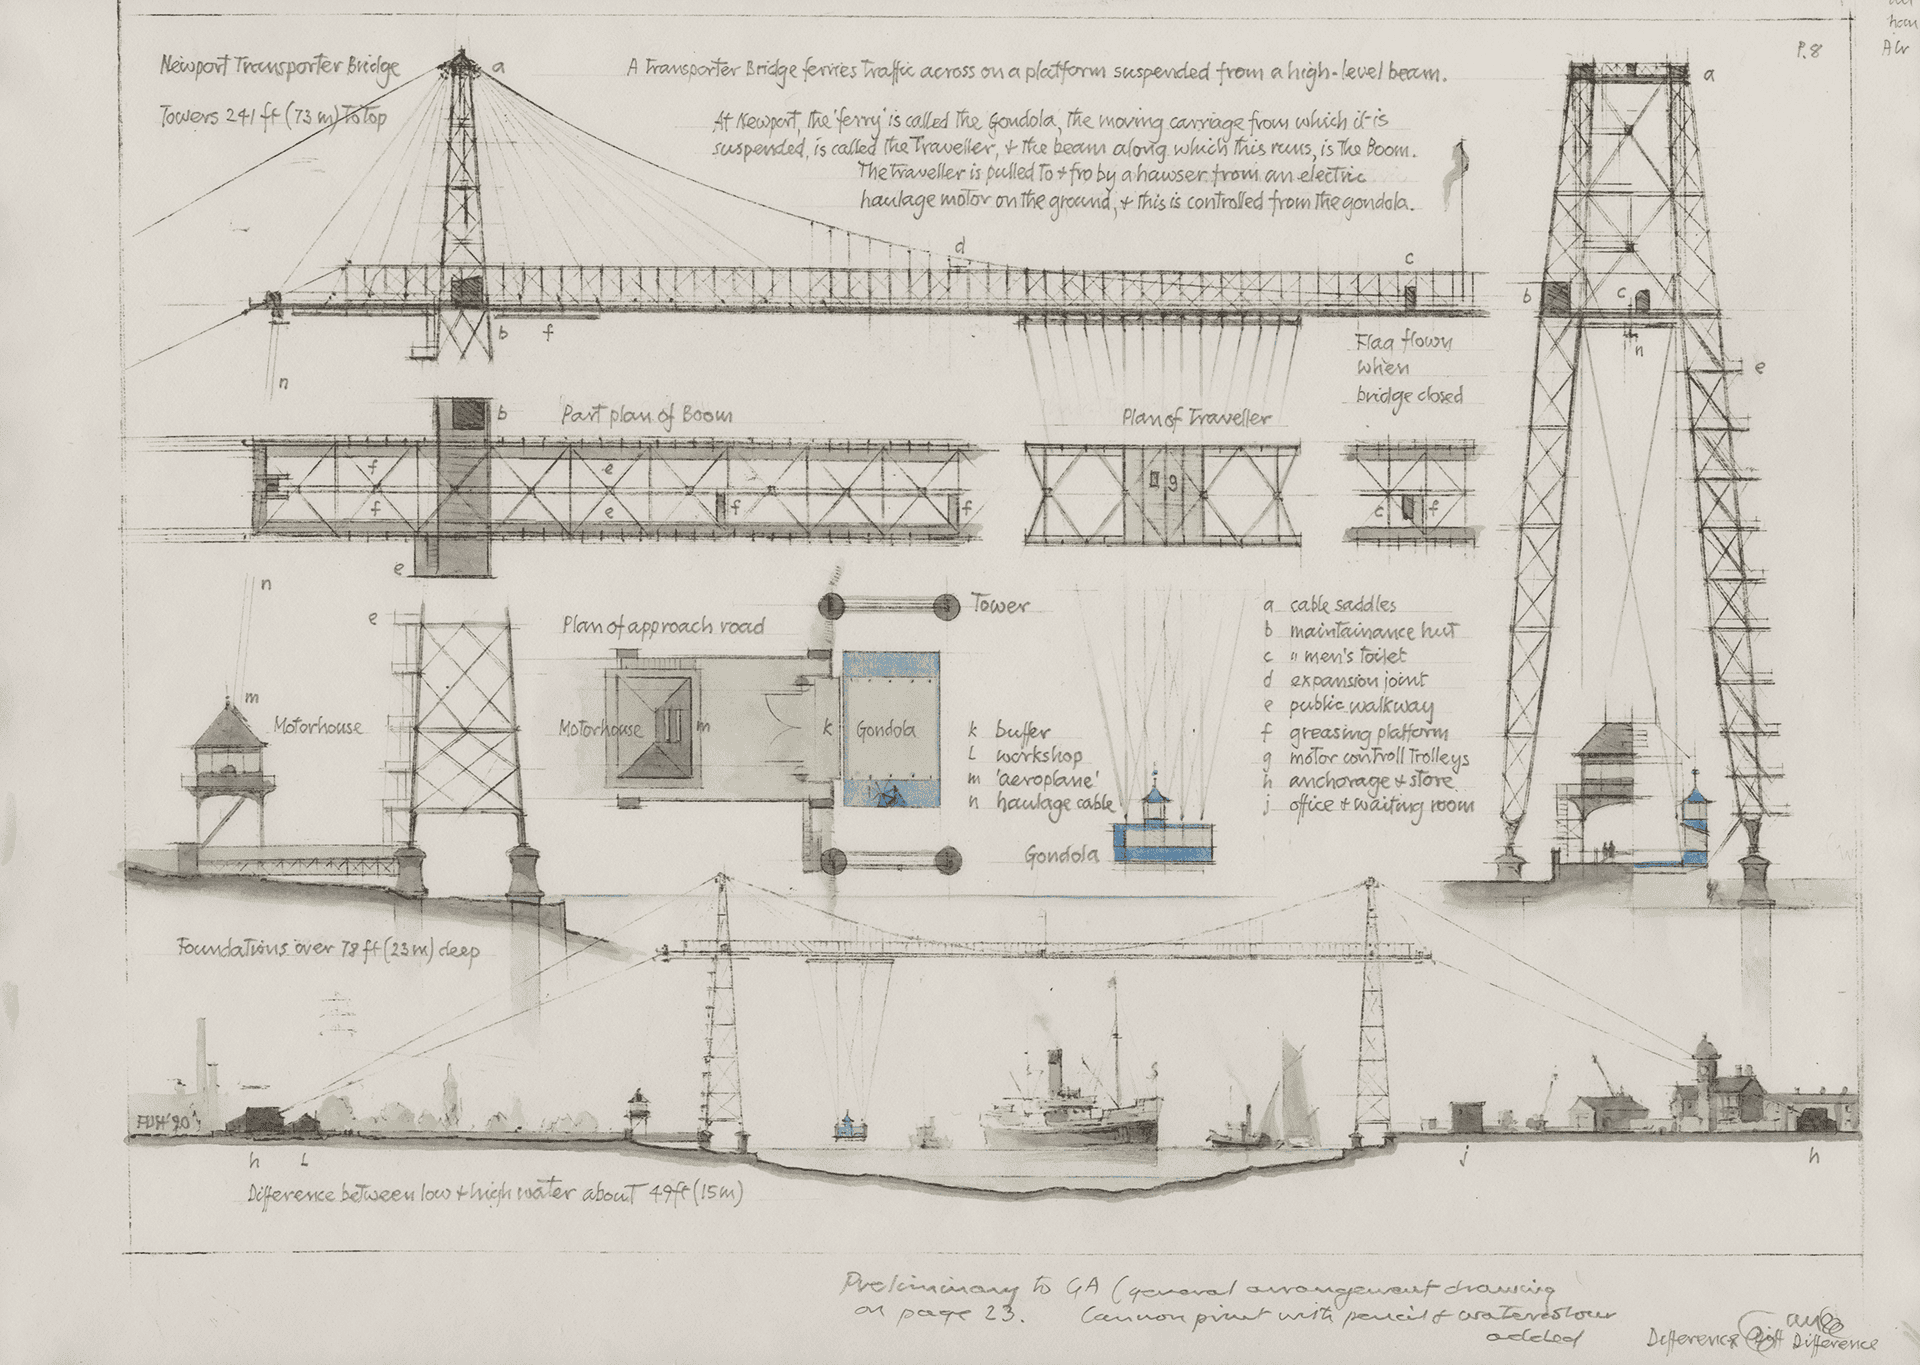 Newport Transporter Bridge
Towers 241 ft (73 m) to top
a
A Transporter Bridge ferries traffic across on a platform suspended from a high-level beam.
At Newport, the 'ferry' is called the Gondola, the moving carriage from which it is
suspended, is called the Traveller, & the beam along which this runs, is the Boom.
The traveller is pulled to & fro by a hawser from an electric
haulage motor on the ground, & this is controlled from the gondola.
P.8
a
d
c
b
f
n
Flag flown
when
bridge closed
b
c
n
e
b
Part plan of Boom
Plan of Traveller
f
e
f
e
f
f
g
c
f
e
n
e
Plan of approach road
Tower
m
Motorhouse
Motorhouse
m
k
Gondola
k buffer
L workshop
m 'aeroplane'
n haulage cable
Gondola
a cable saddles
b maintainance hut
c " men's toilet
d expansion joint
e public walkway
f greasing platform
g motor controll trolleys
h anchorage & store
j office & waiting room
Foundations over 78 ft (23 m) deep
h
L
j
h
Difference between low & high water about 49ft (15m)
Preliminary to GA (general arrangement drawing
on page 23. Cannon print with pencil & watercolour
added
Difference
Difference